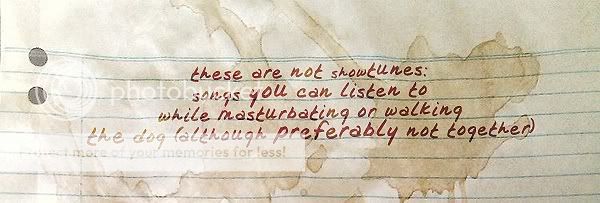 these are not showtunes:
songs you can listen to
while masturbating or walking
the dog (although preferably not together)
photobucket
more of your memories for less!